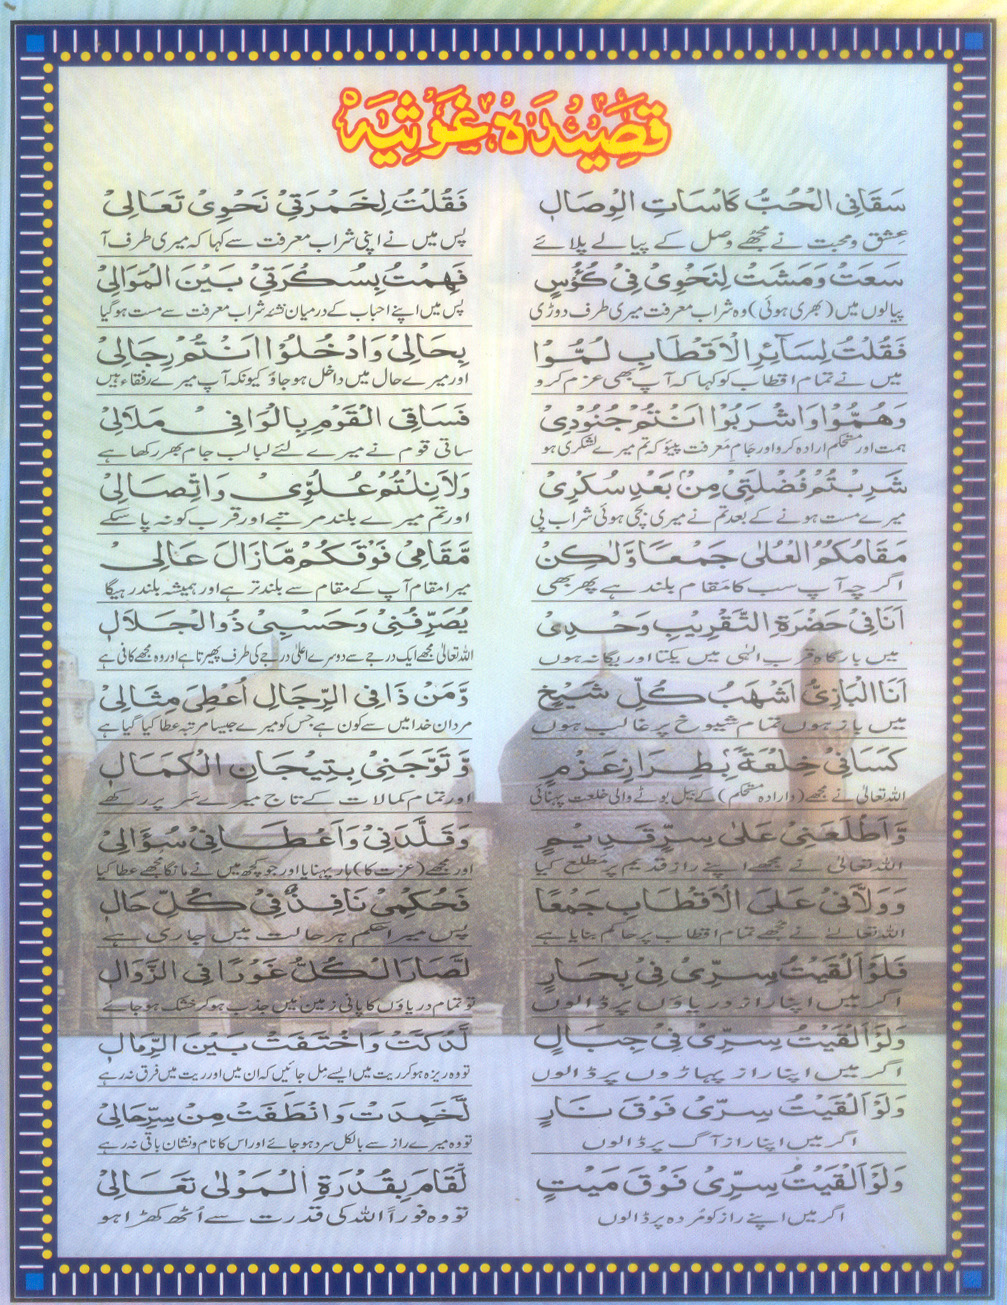 قَصِیْدَہ غَوْثِیَہ
سَقَانِی الْحُبُّ كَاسَاتِ الْوِصَالِ فَقُلْتُ لِخَمْرَتِیْ نَحْوِیْ تَعَالِیْ
عشق ومحبت نے مجھے وصل کے پیالے پلائے پس میں نے اپنی شراب معرفت سے کہا کہ میری طرف آ
سَعَتْ وَمَشَتْ لِنَحْوِیْ فِیْ كُؤُسٍ فَهِمْتُ بِسُكْرَتِیْ بَیْنَ الْمَوَالِیْ
پیالوں میں (بھری ہوئی) وہ شراب معرفت میری طرف دوڑی پس میں اپنے احباب کے درمیان نشہء شراب معرفت سے مست ہوگیا
فَقُلْتُ لِسَآئِرِ الْاَقْطَابِ لُمُّوْا بِحَالِیْ وَادْخُلُوْا اَنْتُمْ رِجَالِیْ
میں نے تمام اقطاب کو کہا کہ آپ بھی عزم کرو اور میرے حال میں داخل ہو جاؤ کیونکہ آپ میرے رفقاء ہیں
وَهُمُّوْا وَاشْرَبُوْا اَنْتُمْ جُنُوْدِیْ فَسَاقِی الْقَوْمِ بِالْوَافِیْ مَلَالِیْ
ہمت اور مستحکم ارادہ کرو اور جام معرفت پیئو کہ تم میرے لشکری ہو ساقی قوم نے میرے لئے لبالب جام بھر رکھا ہے
شَرِبْتُمْ فُضْلَتِیْ مِنْ بَعْدِ سُكْرِیْ وَلَا نِلْتُمْ عُلُوِّیْ وَاتِّصَالِیْ
میرے مست ہونے کے بعد تم نے میری بچی ہوئی شراب پی اور تم میرے بلند مرتبے اور قرب کو نہ پا سکے
مَقَامُكُمُ الْعُلٰی جَمْعًا وَّلٰكِنْ مَّقَامِیْ فَوْقَكُمْ مَّازَالَ عَالِیْ
اگرچہ آپ سب کا مقام بلند ہے پھر بھی میرا مقام آپ کے مقام سے بلند تر ہے اور ہمیشہ بلند رہیگا
اَنَا فِیْ حَضْرَةِ التَّقْرِیْبِ وَحْدِیْ یُصَرِّفُنِیْ وَحَسْبِیْ ذُو الْجَلَالِ
میں بارگاہ قرب الٰہی میں یکتا اور یگانہ ہوں اللہ تعالٰی مجھے ایک درجے سے دوسرے اعلٰی درجے کی طرف پھیرتا ہے اور وہ مجھے کافی ہے
اَنَا الْبَازِیُّ اَشْهَبُ كُلِّ شَیْخٍ وَّمَنْ ذَا فِی الرِّجَالِ اُعْطِیَ مِثَالِیْ
میں باز ہوں تمام شیوخ پر غالب ہوں مردان خدا میں سے کون ہے جس کو میرے جیسا مرتبہ عطا کیا گیا ہے
كَسَانِیْ خِلْعَةً بِطِرَازِ عَزْمٍ وَّتَوَّجَنِیْ بِتِیْجَانِ الْكَمَالِ
اللہ تعالٰی نے مجھے (وارادہ مستحکم) کے بیل بوٹے والی خلعت پہنائی اور تمام کمالات کے تاج میرے سر پر رکھے
وَاَطْلَعَنِیْ عَلٰی سِرٍّ قَدِیْمٍ وَقَلَّدَنِیْ وَاَعْطَانِیْ سُؤَالِیْ
اللہ تعالٰی نے مجھے اپنے راز قدیم پر مطلع کیا اور مجھے (عزت کا) ہار پہنایا اور جو کچھ میں نے مانگا مجھے عطا کیا
وَوَلَّانِیْ عَلَی الْاَقْطَابِ جَمْعًا فَحُكْمِیْ نَافِذٌ فِیْ كُلِّ حَالِ
اللہ تعالٰی نے مجھے تمام اقطاب پر حاکم بنایا ہے پس میرا حکم ہر حالت میں جاری ہے
فَلَوْ اَلْقَیْتُ سِرِّیْ فِیْ بِحَارٍ لَّصَارَ الْكُلُّ غَوْرًا فِی الزَّوَالِ
اگر میں اپنا راز دریاؤں پر ڈالوں تو تمام دریاؤں کا پانی زمین میں جذب ہو کر خشک ہو جائے
وَلَوْ اَلْقَیْتُ سِرِّیْ فِیْ جِبَالٍ لَّدُكَّتْ وَاخْتَفَتْ بَیْنَ الرِّمَالِ
اگر میں اپنا راز پہاڑوں پر ڈالوں تو وہ ریزہ ہو کر ریت میں ایسے مل جائیں کہ ان میں اور ریت میں فرق نہ رہے
وَلَوْ اَلْقَیْتُ سِرِّیْ فَوْقَ نَارٍ لَّخَمِدَتْ وَانْطَفَتْ مِنْ سِرِّ حَالِیْ
اگر میں اپنا راز آگ پر ڈالوں تو وہ میرے راز سے بالکل سرد ہو جائے اور اس کا نام و نشان باقی نہ رہے
وَلَوْ اَلْقَیْتُ سِرِّیْ فَوْقَ مَیْتٍ لَّقَامَ بِقُدْرَةِ الْمَوْلٰی تَعَالِیْ
اگر میں اپنے راز کو مردہ پر ڈالوں تو وہ فوراً اللہ کی قدرت سے اُٹھ کھڑا ہو